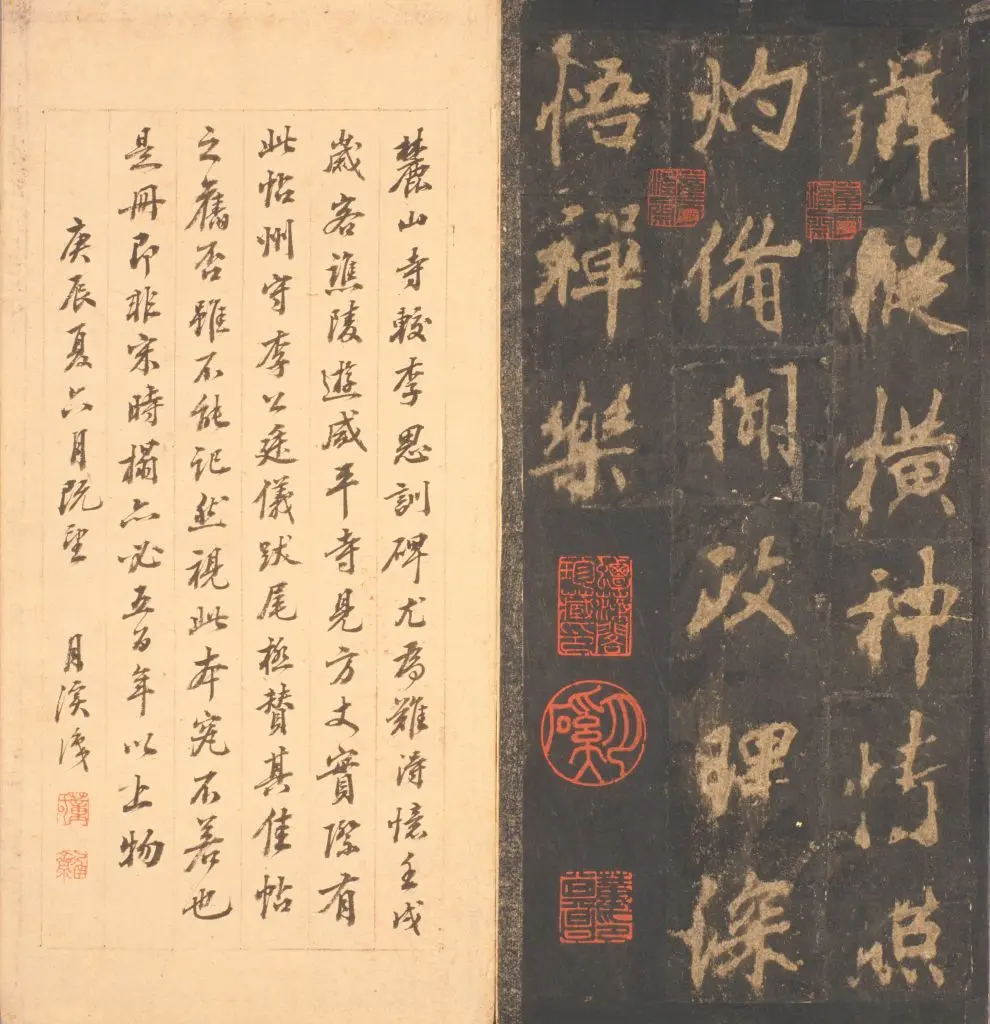 辯縱橫神情照
灼備聞政理深
悟禪樂
麓山寺較李思訓碑尤為難得憶壬戌
歲客譙陵遊咸平寺見方丈實際有
此帖州守李公廷儀跋尾極贊其佳帖
之舊否雖不能記然視此本究不若也
是冊即非宋時榻亦必五百年以上物
庚辰夏六月既望 月溪識